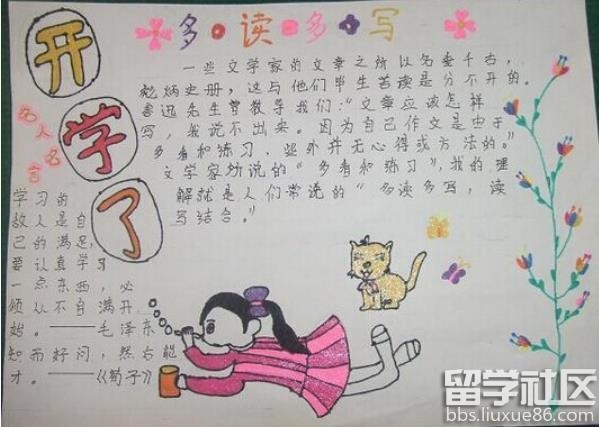 开学了
多读多写
一些文学家的文章之所以名垂千古,
彪炳史册,这与他们毕生苦读是分不开的。
鲁迅先生曾教导我们:“文章应该怎样
写,我说不出来。因为自己作文是由于
多看和练习,些外并无心得或方法的。”
文学家所说的“多看和练习”,我的理
解就是人们常说的“多读多写,读
写结合。”
名人名言
学习的
敌人是自
己的满足,
要认真学习
一点东西,必
须从不自满开
始。——毛泽东
知而好问,然后能
才。——《荀子》
留学社区
bbs.liuxue86.com